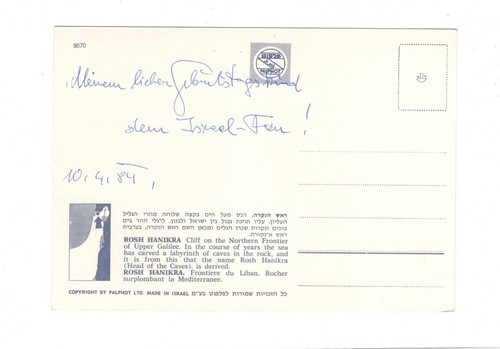 9870
פלפוט
PALPHOT
Meinem lieben Geburtstagskind
dem Israel-Fan!
10. 4. 84,
ראש הנקרה, רכס מעל הים בקצה שלוחה מהרי הגליל
העליון, עליו תחנת גבול בין ישראל ולבנון, לרגלי ההר בים
כוכים ונקרות שכרו הגלים ומכאן השם ראש הנקרה, בערבית
ראש א־נקורה.
ROSH HANIKRA Cliff on the Northern Frontier
of Upper Galilee. In the course of years the sea
has carved a labyrinth of caves in the rock, and
it is from this that the name Rosh Hanikra
(Head of the Caves), is derived.
ROSH HANIKRA. Frontiere du Liban. Rocher
surplombant la Mediterranee.
COPYRIGHT BY PALPHOT LTD. MADE IN ISRAEL כל הזכויות שמורות לפלפוט בע"מ